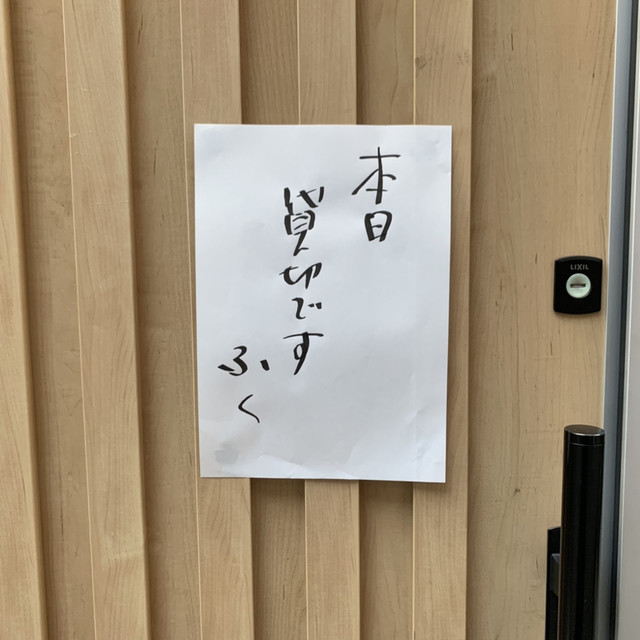 本日
貸切です
ふく
LIXIL